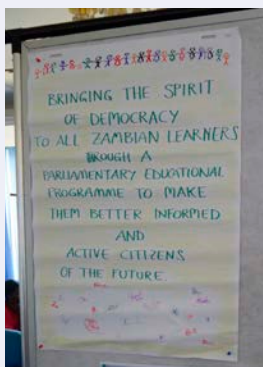 BRINGING THE SPIRIT
OF DEMOCRACY
TO ALL ZAMBIAN LEARNERS
THROUGH A
PARLIAMENTARY EDUCATIONAL
PROGRAMME TO MAKE
THEM BETTER INFORMED
AND
ACTIVE CITIZENS
OF THE FUTURE.